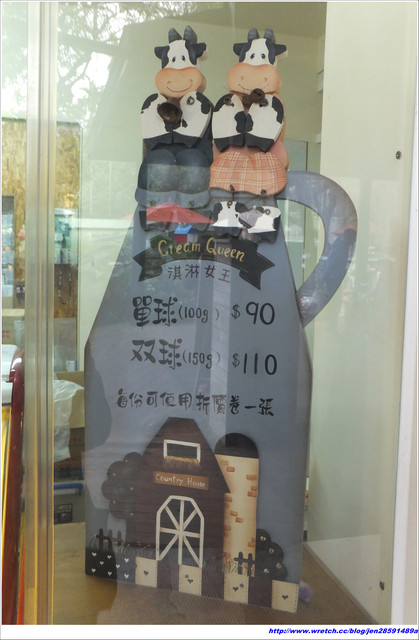 Cream Queen
淇淋女王
單球(100g) $90
双球(150g) $110
每份可使用折價卷一張
Country Home
http://www.wretch.cc/blog/jen28591489a